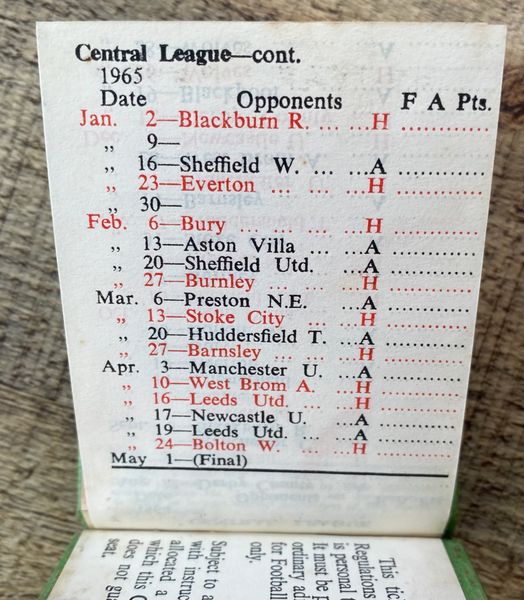 Central League—cont.
1965
Date Opponents F A Pts.
Jan. 2—Blackburn R. ... ...H ..................
„ 9—
„ 16—Sheffield W. ... ...A ..................
„ 23—Everton ... ... ...H ..................
„ 30—
Feb. 6—Bury ... ... ... ...H ..................
„ 13—Aston Villa ... ...A ..................
„ 20—Sheffield Utd. ...A ..................
„ 27—Burnley ... ... ...H ..................
Mar. 6—Preston N.E. ...A ..................
„ 13—Stoke City ... ...H ..................
„ 20—Huddersfield T. ...A ..................
„ 27—Barnsley ... ... ...H ..................
Apr. 3—Manchester U. ...A ..................
„ 10—West Brom A. ...H ..................
„ 16—Leeds Utd. ... ...H ..................
„ 17—Newcastle U. ...A ..................
„ 19—Leeds Utd. ... ...A ..................
„ 24—Bolton W. ... ...H ..................
May 1—(Final)
This
Regulations
is personal
It must be
ordinary
for Football
only.
Subject to a
with
allocated a
which this
does not
seat.